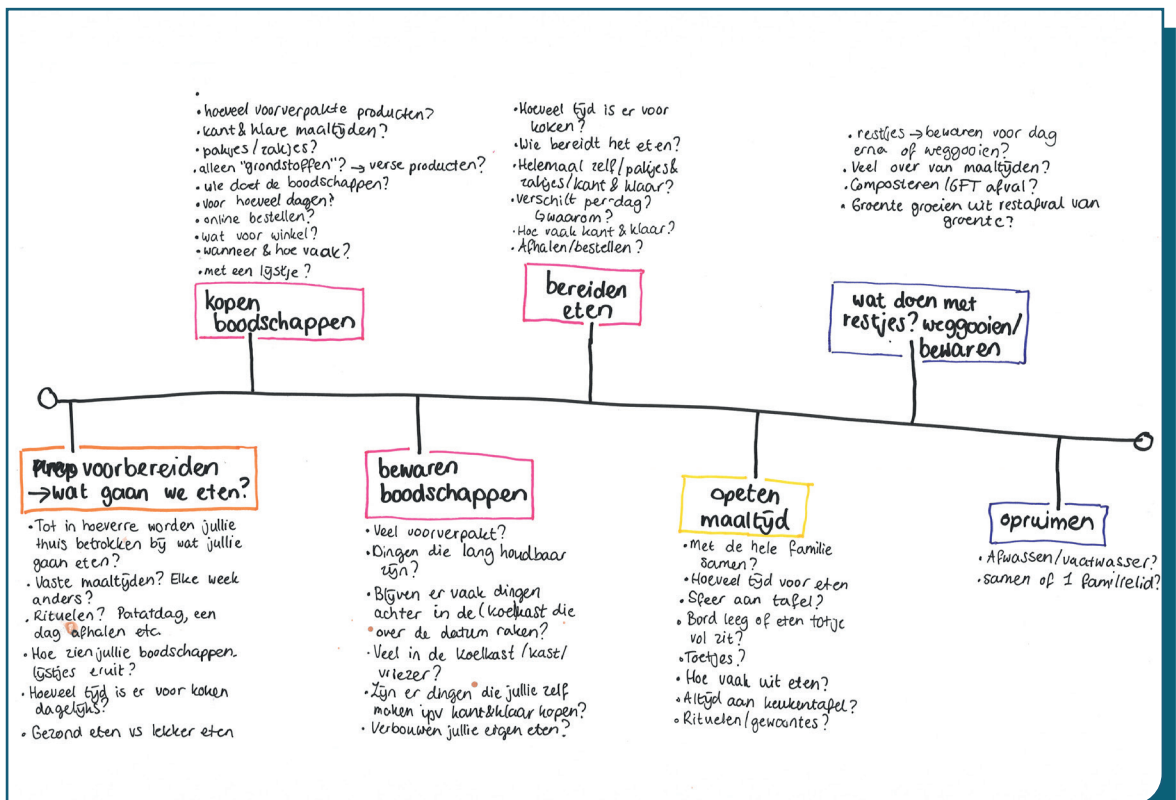 • hoeveel voorverpakte producten?
• kant & klare maaltijden?
• pakjes / zakjes?
• alleen "grondstoffen"? → verse producten?
• wie doet de boodschappen?
• voor hoeveel dagen?
• online bestellen?
• wat voor winkel?
• wanneer & hoe vaak?
• met een lijstje?
kopen
boodschappen
• Hoeveel tijd is er voor
koken?
• Wie bereidt het eten?
• Helemaal zelf/pakjes &
zakjes/kant & klaar?
• verschilt per dag?
↳ waarom?
• Hoe vaak kant & klaar?
• Afhalen/bestellen?
bereiden
eten
• restjes → bewaren voor dag
erna of weggooien?
• Veel over van maaltijden?
• Composteren / GFT afval?
• Groente groeien uit restafval van
groente?
wat doen met
restjes? weggooien/
bewaren
voorbereiden
→ wat gaan we eten?
• Tot in hoeverre worden jullie
thuis betrokken bij wat jullie
gaan eten?
• Vaste maaltijden? Elke week
anders?
• Rituelen? Patatdag, een
dag afhalen etc.
• Hoe zien jullie boodschappen-
lijstjes eruit?
• Hoeveel tijd is er voor koken
dagelijks?
• Gezond eten vs lekker eten
bewaren
boodschappen
• Veel voorverpakt?
• Dingen die lang houdbaar
zijn?
• Blijven er vaak dingen
achter in de (koel)kast die
over de datum raken?
• Veel in de koelkast / kast/
vriezer?
• Zijn er dingen die jullie zelf
maken ipv kant&klaar kopen?
• Verbouwen jullie eigen eten?
opeten
maaltijd
• Met de hele familie
samen?
• Hoeveel tijd voor eten
• Sfeer aan tafel?
• Bord leeg of eten tot je
vol zit?
• Toetjes?
• Hoe vaak uit eten?
• Altijd aan keukentafel?
• Rituelen/gewoontes?
opruimen
• Afwassen/vaatwasser?
• samen of 1 familielid?